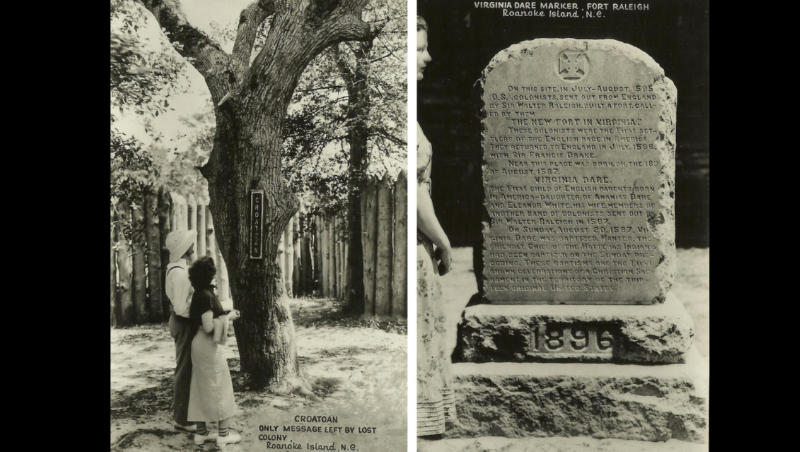 CRO
CROATOAN
ONLY MESSAGE LEFT BY LOST
COLONY.
Roanoke Island, N.C.
VIRGINIA DARE MARKER, FORT RALEIGH
Roanoke Island, N.C.
ON THIS SITE, IN JULY-AUGUST, 1585
(O.S.), COLONISTS, SENT OUT FROM ENGLAND
BY SIR WALTER RALEIGH, BUILT A FORT, CALL-
ED BY THEM
"THE NEW FORT IN VIRGINIA."
THESE COLONISTS WERE THE FIRST SET-
TLERS OF THE ENGLISH RACE IN AMERICA.
THEY RETURNED TO ENGLAND IN JULY, 1586,
WITH SIR FRANCIS DRAKE.
NEAR THIS PLACE WAS BORN, ON THE 18TH
OF AUGUST, 1587,
VIRGINIA DARE,
THE FIRST CHILD OF ENGLISH PARENTS BORN
IN AMERICA-DAUGHTER OF ANANIAS DARE
AND ELEANOR WHITE, HIS WIFE, MEMBERS OF
ANOTHER BAND OF COLONISTS, SENT OUT BY
SIR WALTER RALEIGH IN 1587.
ON SUNDAY, AUGUST 20, 1587, VIR-
GINIA DARE WAS BAPTIZED. MANTEO, THE
FRIENDLY CHIEF OF THE HATTERAS INDIANS
HAD BEEN BAPTIZED ON THE SUNDAY PRE-
CEDING. THESE BAPTISMS ARE THE FIRST
KNOWN CELEBRATIONS OF A CHRISTIAN SAC-
RAMENT IN THE TERRITORY OF THE THIR-
TEEN ORIGINAL UNITED STATES.
1896